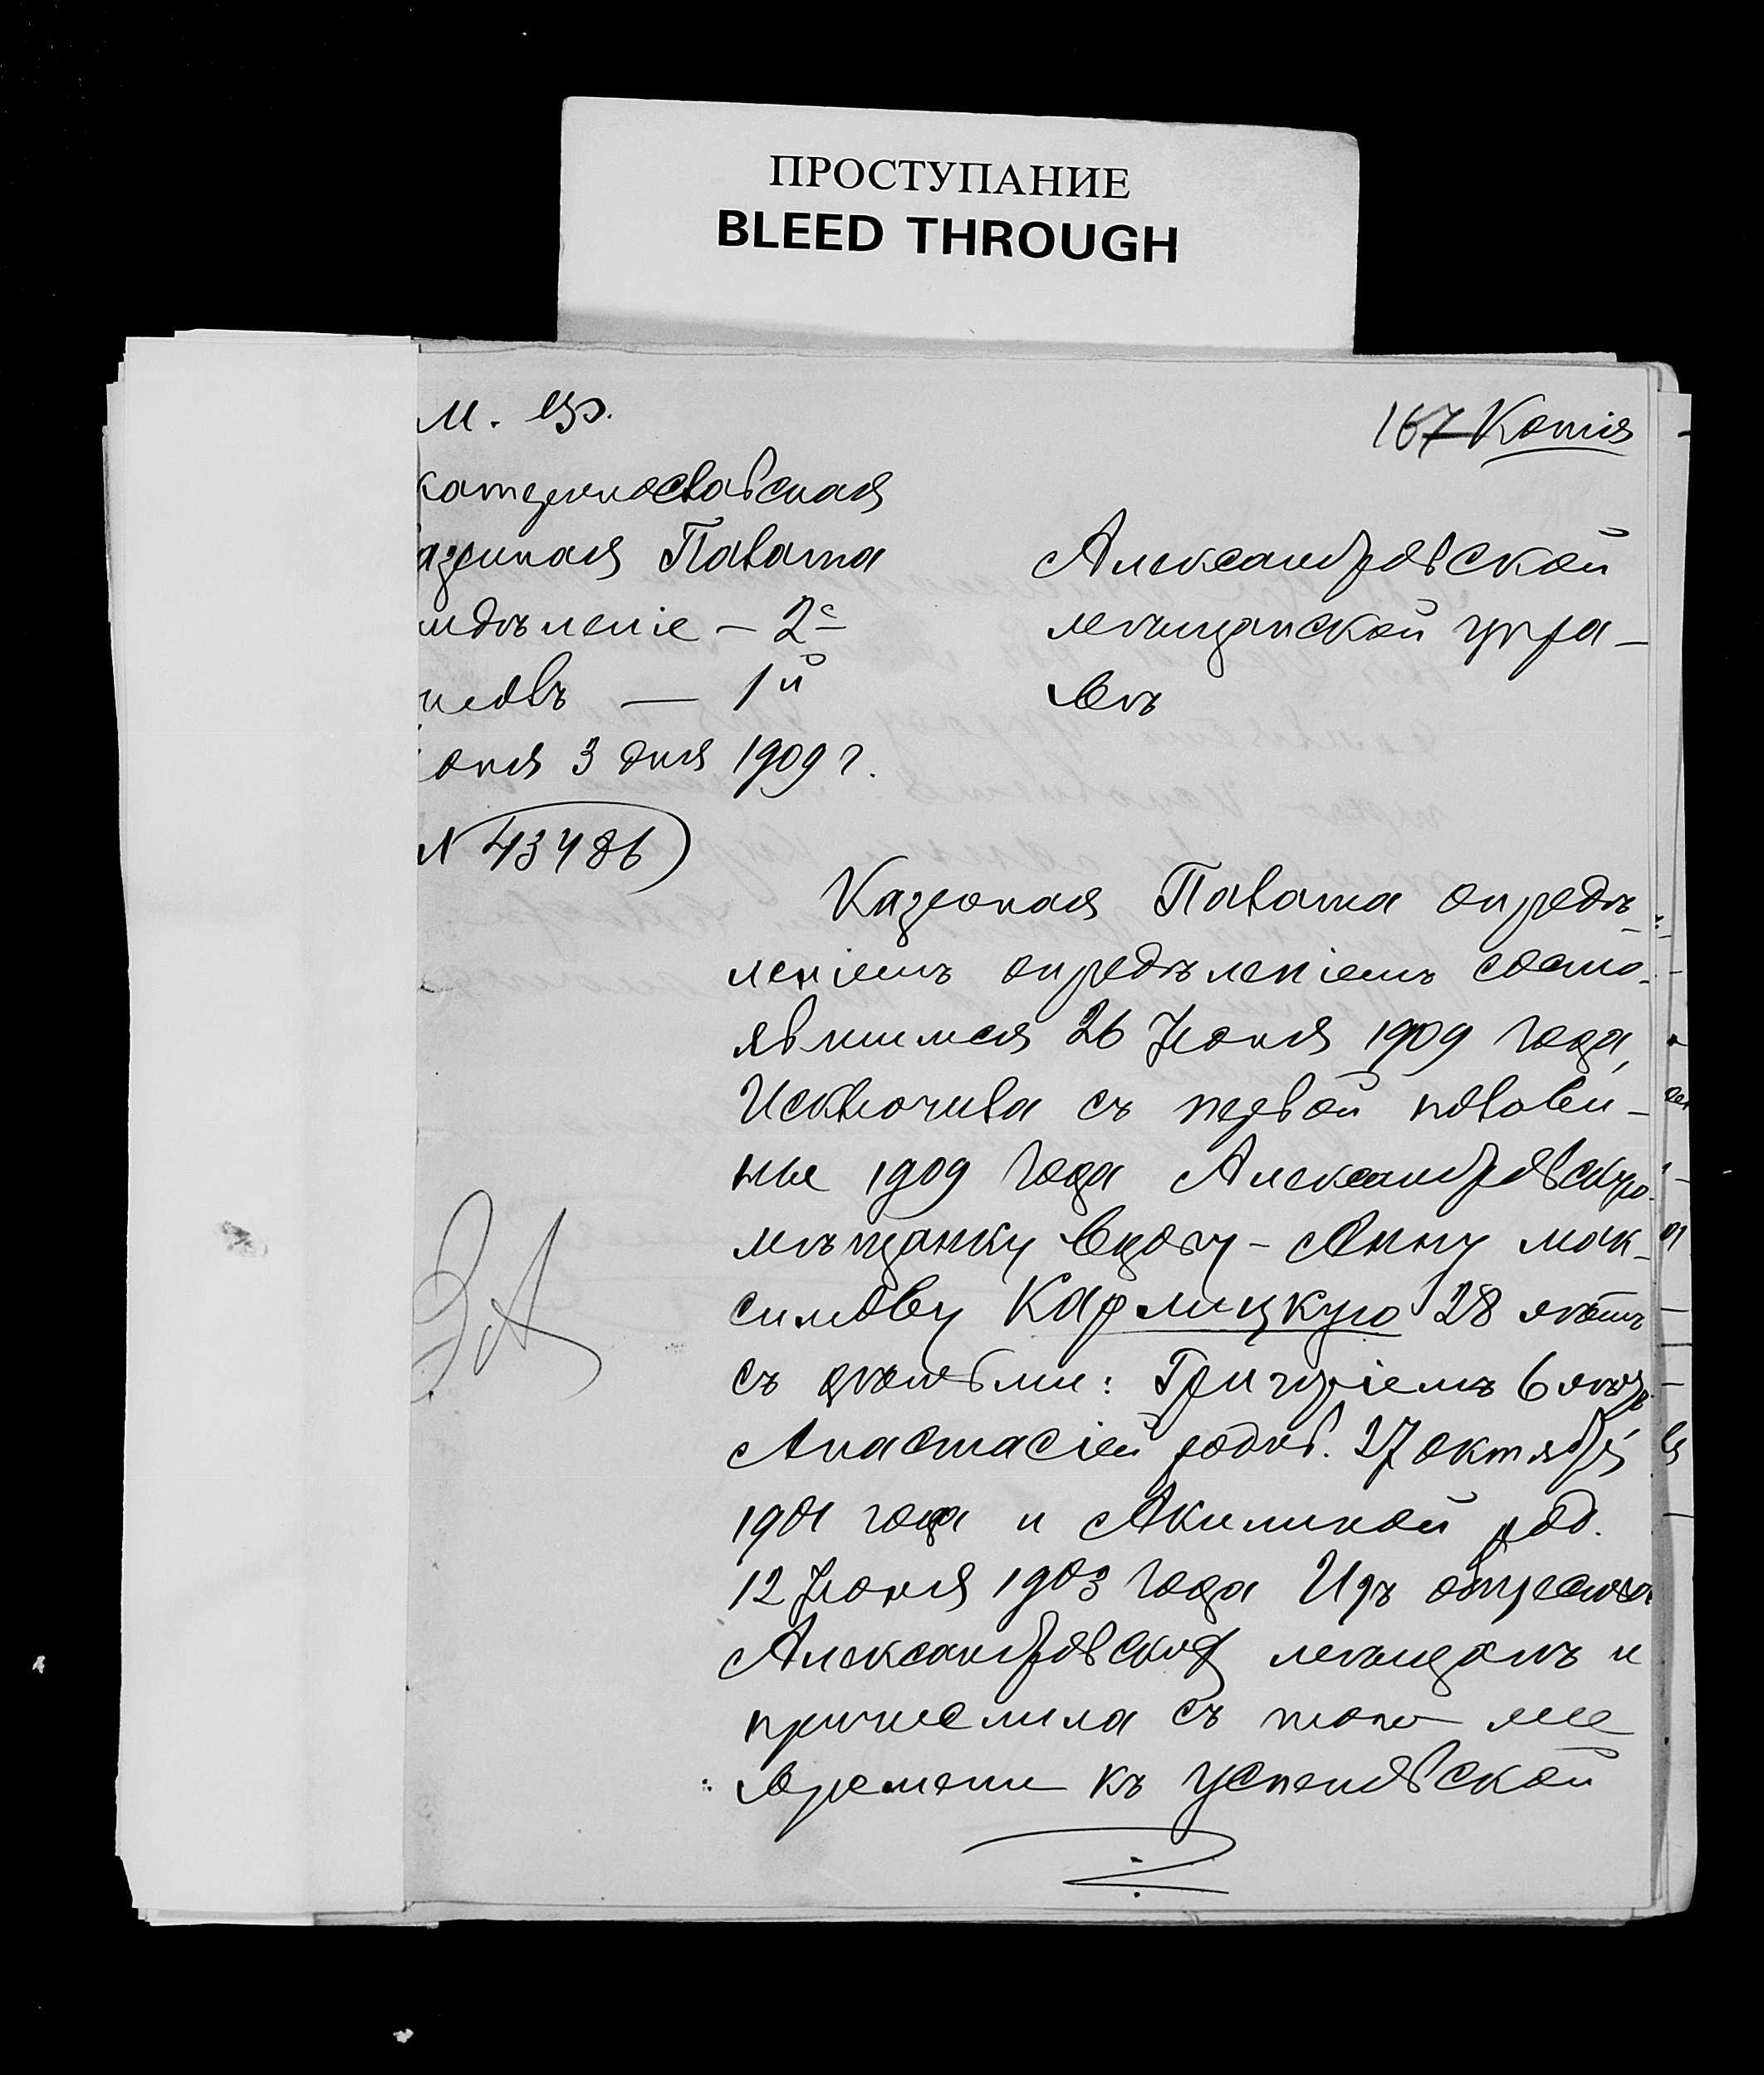 ПРОСТУПАНИЕ
BLEED THROUGH
М.
167 Копія
катеринославская
азенная Палата
тдѣленіе – 2е
столъ — 1й
юня 3 дня 1909 г.
N 43486
Александровской
мѣщанской упра-
вѣ
Казенная Палата опредѣ-
леніемъ опредѣленіемъ состо-
явшимся 26 Іюня 1909 года,
Исключила съ первой полови-
ны 1909 года Александровскую
мѣщанку вдову - Анну Мак-
симову Кармицкую 28 лѣтъ
съ дѣтьми: Григоріемъ 6 лѣтъ
Анастасіей родив. 27 октября
1901 года и Акилиной род.
12 Іюня 1903 года Изъ
Александровскихъ мѣщанъ и
причислила съ того же
времени къ Успеновской